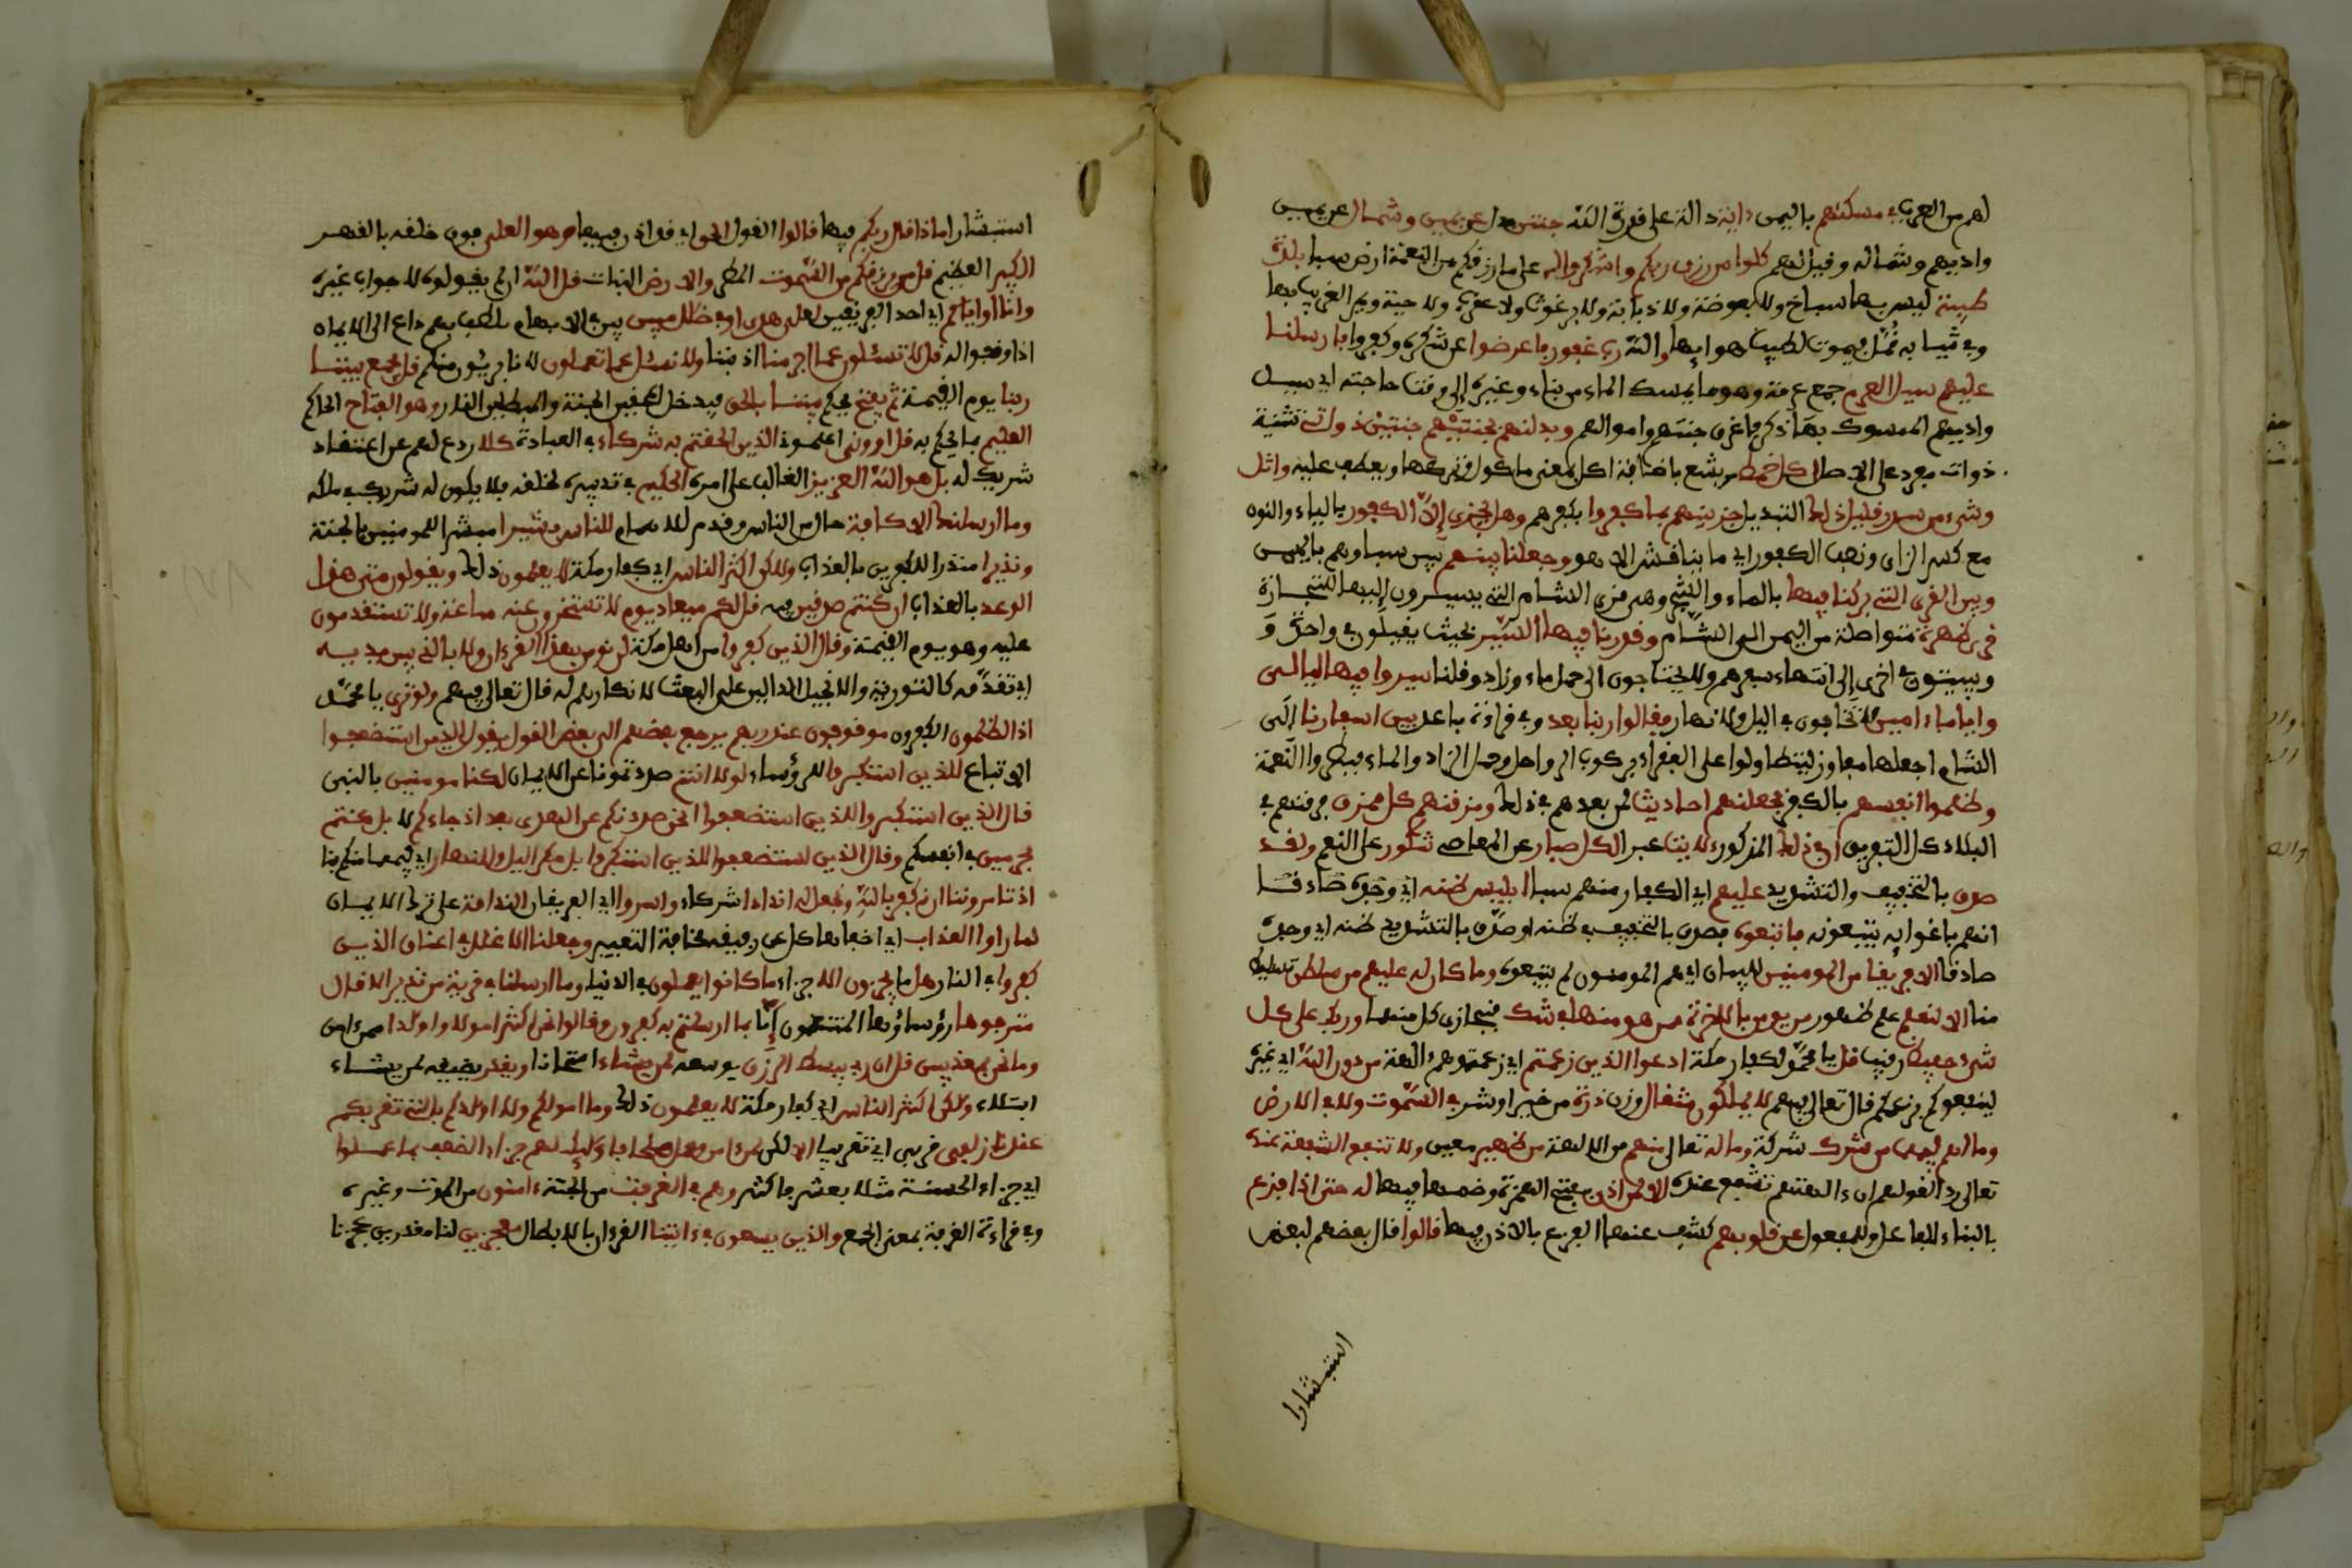 لهم من العرب في مسكنهم باليمن ءاية دالة على قدرة الله جنتن بدل عن يمين وشمال عن يمين
واديهم وشماله وقيل لهم كلوا من رزق ربكم واشكروا له على ما رزقكم من النعمة ارض سبا بلدة
طيبة ليس بها سباخ ولا بعوضة ولا ذبابة ولا برغوث ولا عقرب ولا حية ويمر الغريب بها
وفي ثيابه قمل فيموت لطيب هوايها والله رب غفور فاعرضوا عن شكره وكفروا فارسلنا
عليهم سيل العرم جمع عرمة وهو ما يمسك الماء من بناء وغيره إلى وقت حاجته اي سيل
واديهم الممسوك بما ذكر فاغرق جنتهم واموالهم وبدلنهم بجنتيهم جنتين ذواتي تثنية
ذوات مفرد على الاصل اكل خمط مر بشع باضافة اكل بمعنى ماكول وتركها ويعطف عليه واثل
وشيء من سدر قليل ذلك التبديل جزينهم بما كفروا بكفرهم وهل يجزى إلا الكفور بالياء والنون
مع كسر الزاي ونصب الكفور اي ما يناقش الا هو وجعلنا بينهم بين سبا وهم باليمن
وبين القرى التي بركنا فيها بالماء والشجر وهي قرى الشام التي يسيرون إليها للتجارة
قرى ظهرة متواصلة من اليمن الى الشام وقدرنا فيها السير بحيث يقيلون في واحدة و
ويبيتون في اخرى إلى انتهاء سفرهم ولا يحتاجون الى حمل ماء وزاد وقلنا سيروا فيها ليالي
واياما ءامنين لا تخافون في اليل ولا نهار فقالوا ربنا بعد وفي قراءة باعد بين اسفارنا إلى
الشام اجعلها مفاوز ليتطاولوا على الفقراء بركوب الرواحل وحمل الزاد والماء فبطروا النعمة
وظلموا أنفسهم بالكفر فجعلنهم احاديث لمن بعدهم في ذلك ومزقنهم كل ممزق فرقنهم في
البلاد كل التفريق ان في ذلك المذكور لايت عبر الكل صبار عن المعاصي شكور على النعم ولقد
صدق بالتخفيف والتشديد عليهم اي الكفار منهم سبا ابليس ظنه اي وجده صادقا
انهم باغوايه يتبعونه فاتبعوه فصدق بالتخفيف في ظنه او صدق بالتشديد ظنه اي وجده
صادقا الا فريقا من المومنين للبيان اي هم المومنون لم يتبعوه وما كان له عليهم من سلطن تسليط
منا الا لنعلم علم ظهور من يومن بالاخرة ممن هو منها في شك فنجازي كل منهما وربك على كل
شيء حفيظ رقيب قل يا محمد لكفار مكة ادعوا الذين زعمتم اي زعمتموهم ءالهة من دون الله اي غيره
لينفعوكم بزعمكم قال تعالى فيهم لا يملكون مثقال وزن ذرة من خير او شر في السموت ولا في الارض
وما لهم فيهما من شرك شركة وما له تعالى منهم من الالهة من ظهير معين ولا تنفع الشفعة عنده
تعالى رد القولهم ان ءالهتهم تشفع عنده الا لمن اذن بفتح الهمزة وضمها فيها له حتى اذا فزع
بالبناء للفاعل وللمفعول عن قلوبهم كشف عنها الفزع بالاذن فيها قالوا قال بعضهم لبعض
استبشارا
استبشارا ماذا قال ربكم فيها قالوا القول الحق اي قد اذن فيها وهو العلي فوق خلقه بالقهر
الكبير العظيم قل من يرزقكم من السموت المطر والارض النبات قل الله ان لم يقولوه لا جواب غيره
وانا او اياكم اي احد الفريقين لعلى هدى او في ضلل مبين بين في الابهام تلطف بهم داع الى الايمان
اذا وفقوا له قل لا تسئلون عما اجرمنا اذنبنا ولا نسئل عما تعملون لانا بريئون منكم قل يجمع بيننا
ربنا يوم القيمة ثم يفتح يحكم بيننا بالحق فيدخل المحقين الجنة والمبطلين النار وهو الفتاح الحاكم
العليم بما يحكم به قل اروني اعلموني الذين الحقتم به شركاء في العبادة كلا ردع لهم عن اعتقاد
شريك له بل هو الله العزيز الغالب على امره الحكيم في تدبيره لخلقه فلا يكون له شريك في ملكه
وما ارسلنك الا كافة حال من الناس وقدم للاهتمام للناس بشيرا مبشرا للمومنين بالجنة
ونذيرا منذرا للكفرين بالعذاب ولكن اكثر الناس اي كفار مكة لا يعلمون ذلك ويقولون متى هذا
الوعد بالعذاب ان كنتم صدقين فيه قل لكم ميعاد يوم لا تستخرون عنه ساعة ولا تستقدمون
عليه وهو يوم القيمة وقال الذين كفروا من اهل مكة لن نومن بهذا القرءان ولا بالذي بين يديه
اي تقدمه كالتورية والانجيل الدالين على البعث لانكارهم له قال تعالى فيهم ولو ترى يا محمد
اذ الظلمون الكفرون موقوفون عند ربهم يرجع بعضهم الى بعض القول يقول الذين استضعفوا
الاتباع للذين استكبروا الرؤساء لولا انتم صددتمونا عن الايمان لكنا مومنين بالنبي
قال الذين استكبروا للذين استضعفوا انحن صددنكم عن الهدى بعد اذ جاءكم لا بل كنتم
مجرمين في انفسكم وقال الذين استضعفوا للذين استكبروا بل مكر اليل والنهار اي فيهما منكم بنا
اذ تامروننا ان نكفر بالله ونجعل له اندادا شركاء واسروا اي الفريقان الندامة على ترك الايمان
لما راوا العذاب اي اخفاها كل عن رفيقه مخافة التعيير وجعلنا الاغلل في اعناق الذين
كفروا في النار هل ما يجزون الا جزاء ما كانوا يعملون في الدنيا وما ارسلنا في قرية من نذير الا قال
مترفوها رؤساؤها المتنعمون إنا بما ارسلتم به كفرون وقالوا نحن اكثر امولا واولدا ممن ءامن
وما نحن بمعذبين قل ان ربي يبسط الرزق يوسعه لمن يشاء امتحانا ويقدر يضيقه لمن يشاء
ابتلاء ولكن اكثر الناس اي كفار مكة لا يعلمون ذلك وما امولكم ولا اولدكم بالتي تقربكم
عندنا زلفى قربى اي تقريبا الا لكن من ءامن وعمل صلحا فاولئك لهم جزاء الضعف بما عملوا
اي جزاء الحسنة مثلا بعشر فاكثر وهم في الغرفت من الجنة ءامنون من الموت وغيره
وفي قراءة الغرفة بمعنى الجمع والذين يسعون في ءايتنا القرءان بالابطال معجزين لنا مقدرين عجزنا